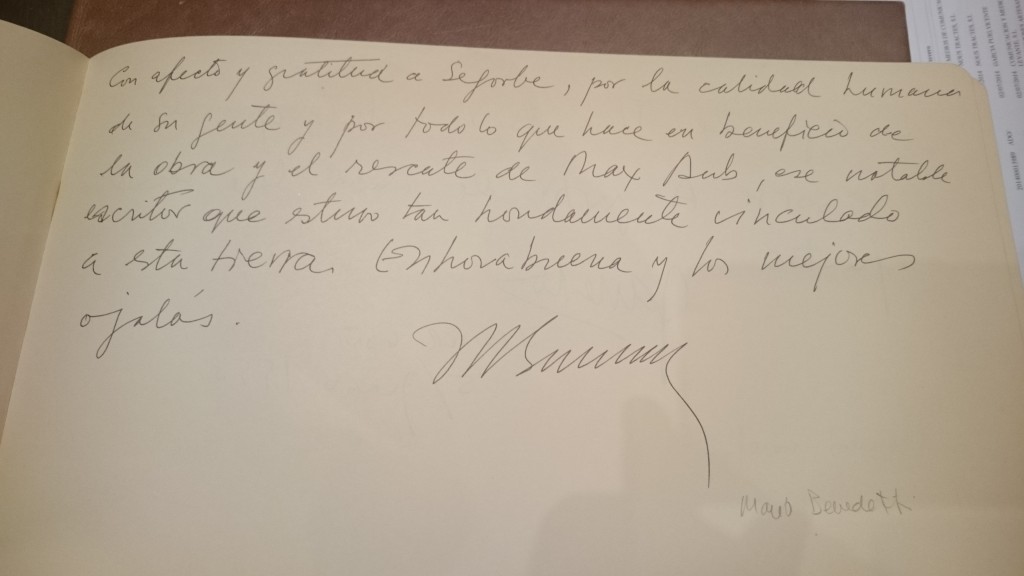 Con afecto y gratitud a Segorbe, por la calidad humana
de su gente y por todo lo que hace en beneficio de
la obra y el rescate de Max Aub, ese notable
escritor que estuvo tan hondamente vinculado
a esta tierra. Enhorabuena y los mejores
ojalás.
Mario Benedetti